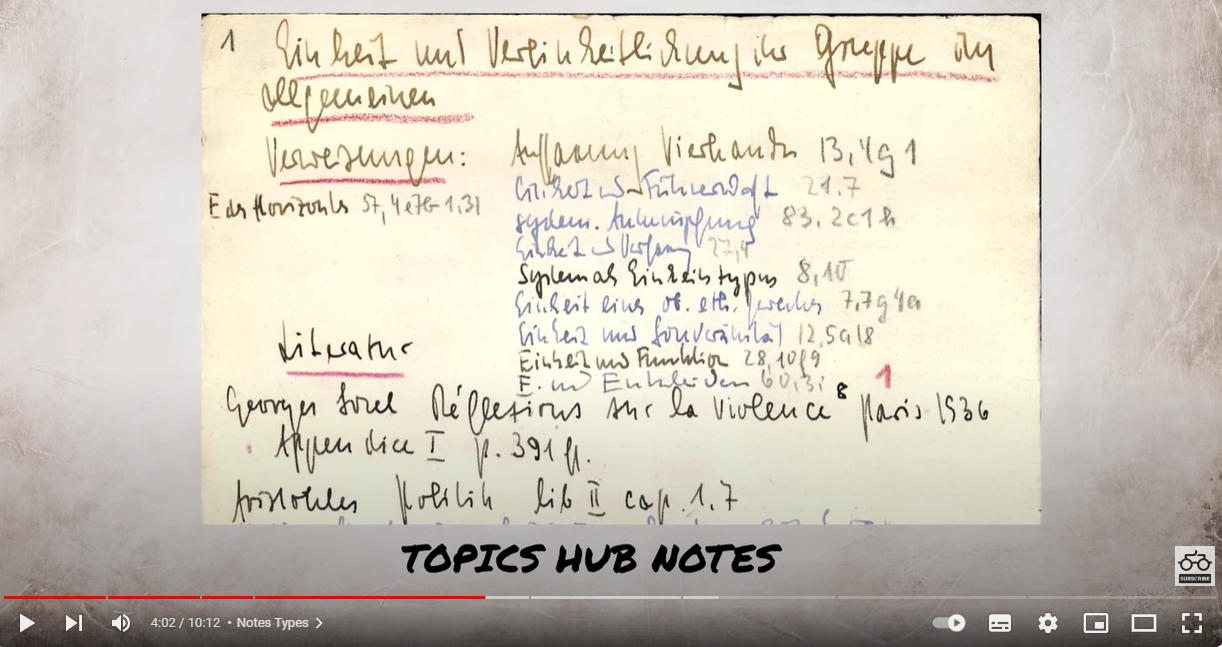 1 Einheit und Vereinheitlichung der Gruppe im
allgemeinen
Verweisungen:
E des Horizontes 57,4e7b1,31
Auffassung Vierkandts 13,4g1
Einheit u Führerschaft 21.7
system. Anknüpfung 83.2c1h
Einheit u Verfassung 27,4
System als Einheitstypus 8,10
Einheit eines ob. eth. Zweckes 7,7g4a
Einheit und Souveränität 12,5a18
Einheit und Funktion 28,10f9
E. und 60,3i 1
Literatur
Georges Sorel Réflexions sur la violence 8 Paris 1936
Appendice I p. 391 ff.
Aristoteles Politik lib II cap. 1.7
TOPICS HUB NOTES
SUBSCRIBE
4:02 / 10:12 • Notes Types